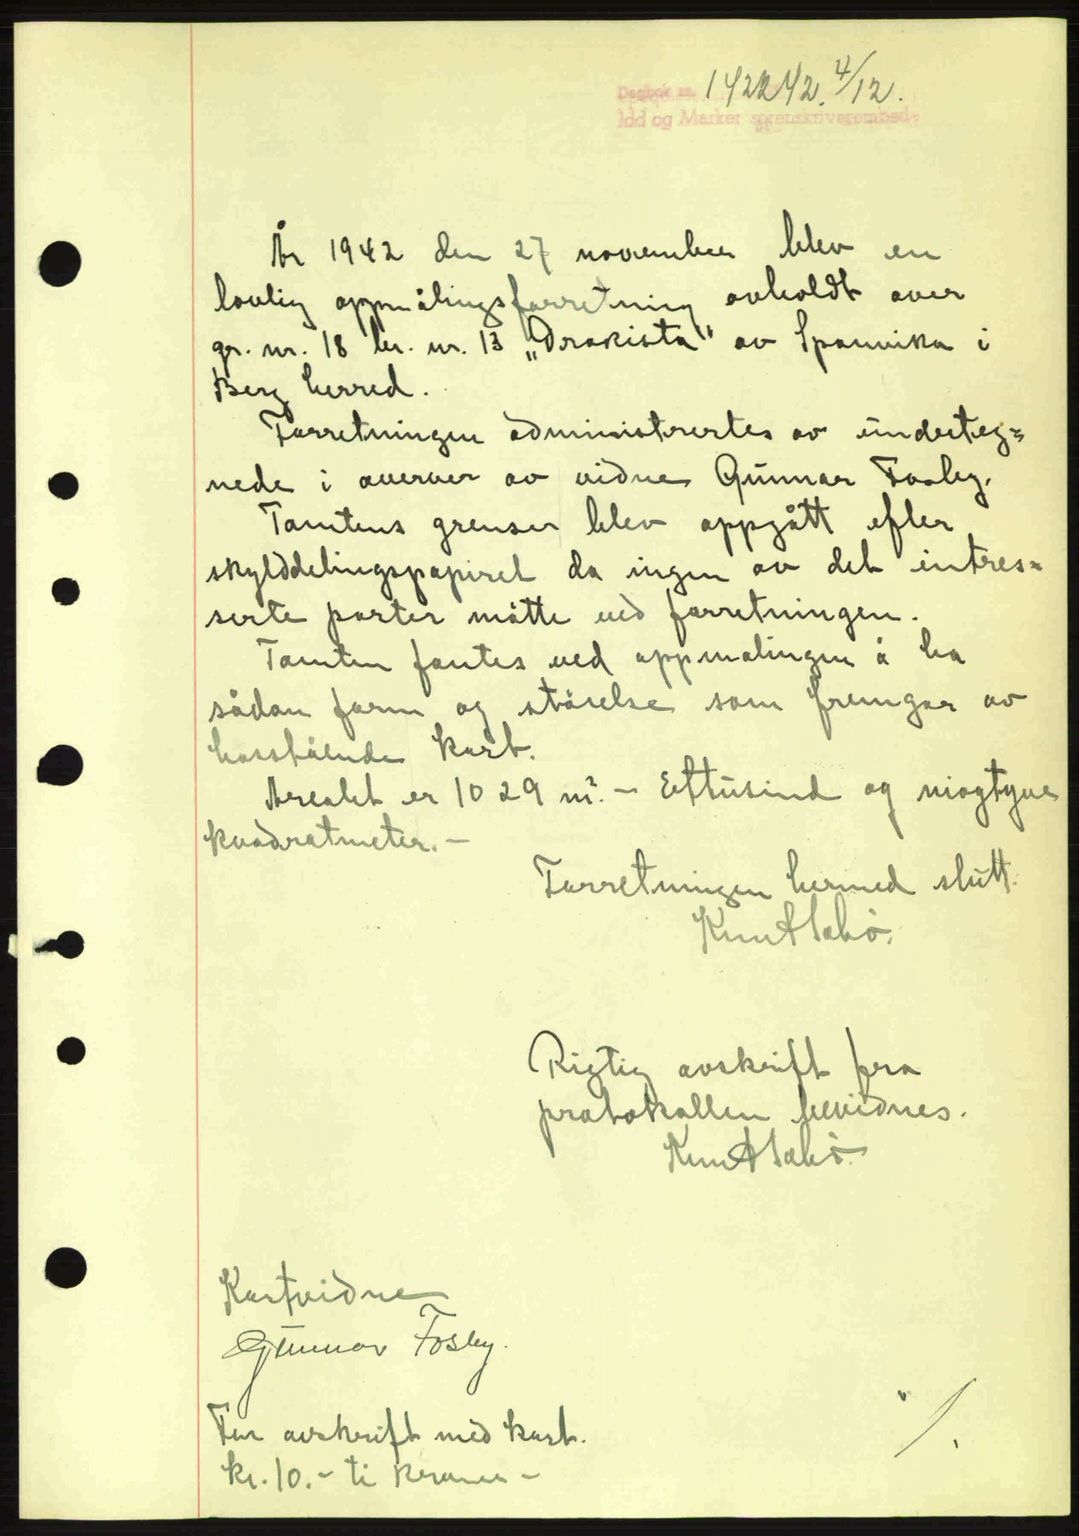 Dagbok nr. 1422 42. 4/12.
Idd og Marker sorenskriverembede
År 1942 den 27 november blev en
lovlig oppmålingsforretning avholdt over
gr. nr. 18 br. nr. 13 „Drakista" av Sponvika i
Berg herred.
Forretningen administrertes av underteg=
nede i överver av vidne Gunnar Fosby.
Tomtens grenser blev oppgått efter
skylddelingspapiret da ingen av det intres=
serte parter møtte ved forretningen.
Tomten fantes ved oppmalingen å ha
sådan form og störelse som fremgar av
hosstående kart.
Arealet er 1029 m². - Ettusind og niogtyve
kvadratmeter. -
Forretningen hermed slutt.
Knut Sæbö.
Rigtig avskrift fra
protokollen bevidnes.
Knut Sæbö.
Kartvidne
Gunnar Fosby.
For avskrift med kart.
kr. 10. - ti kroner -